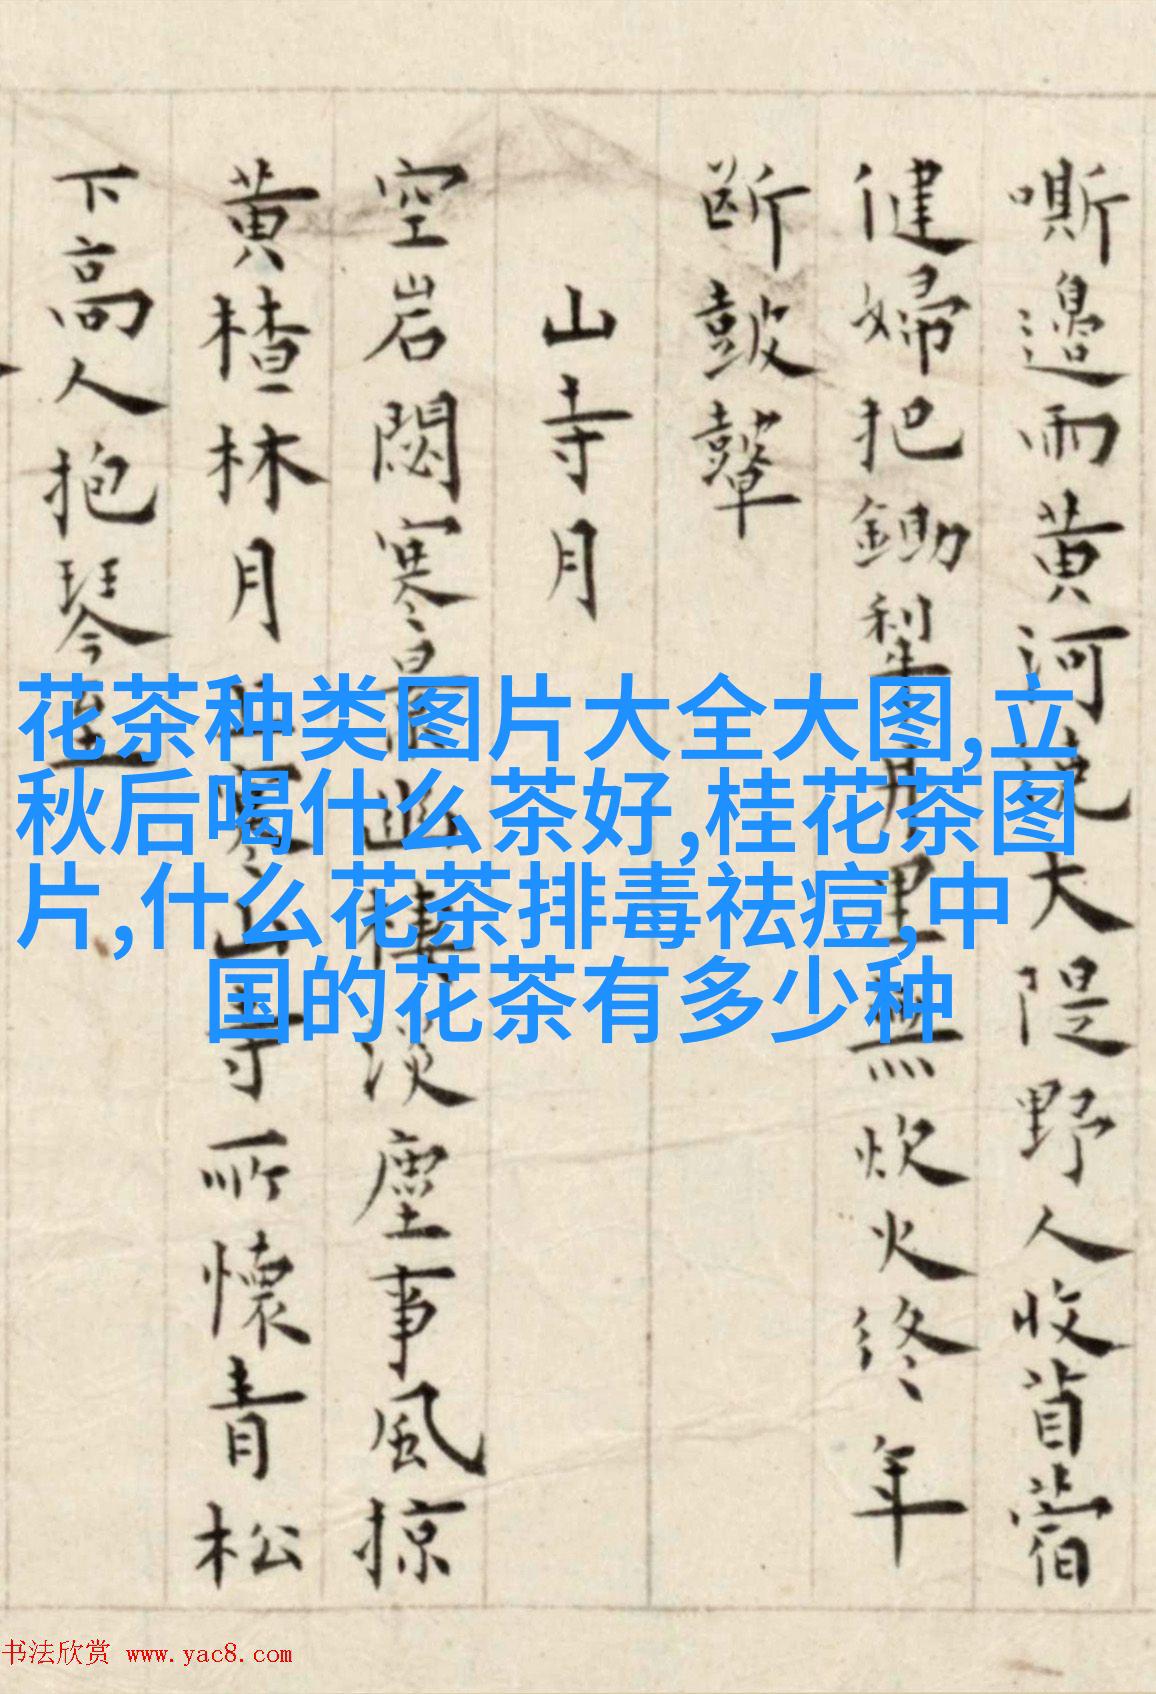 嘶邊雨黄河大隄野人收苜蓿
健婦把鋤犁里無炊火終年
断皷鼙
山寺月
空岩閟寒幽棲淡塵事風掠
黄楂林月上寒山寺所懷青松
下高人抱琴至
花茶种类图片大全大图,立
秋后喝什么茶好,桂花茶图
片,什么花茶排毒祛痘,中
国的花茶有多少种
书法欣赏 www.yac8.com